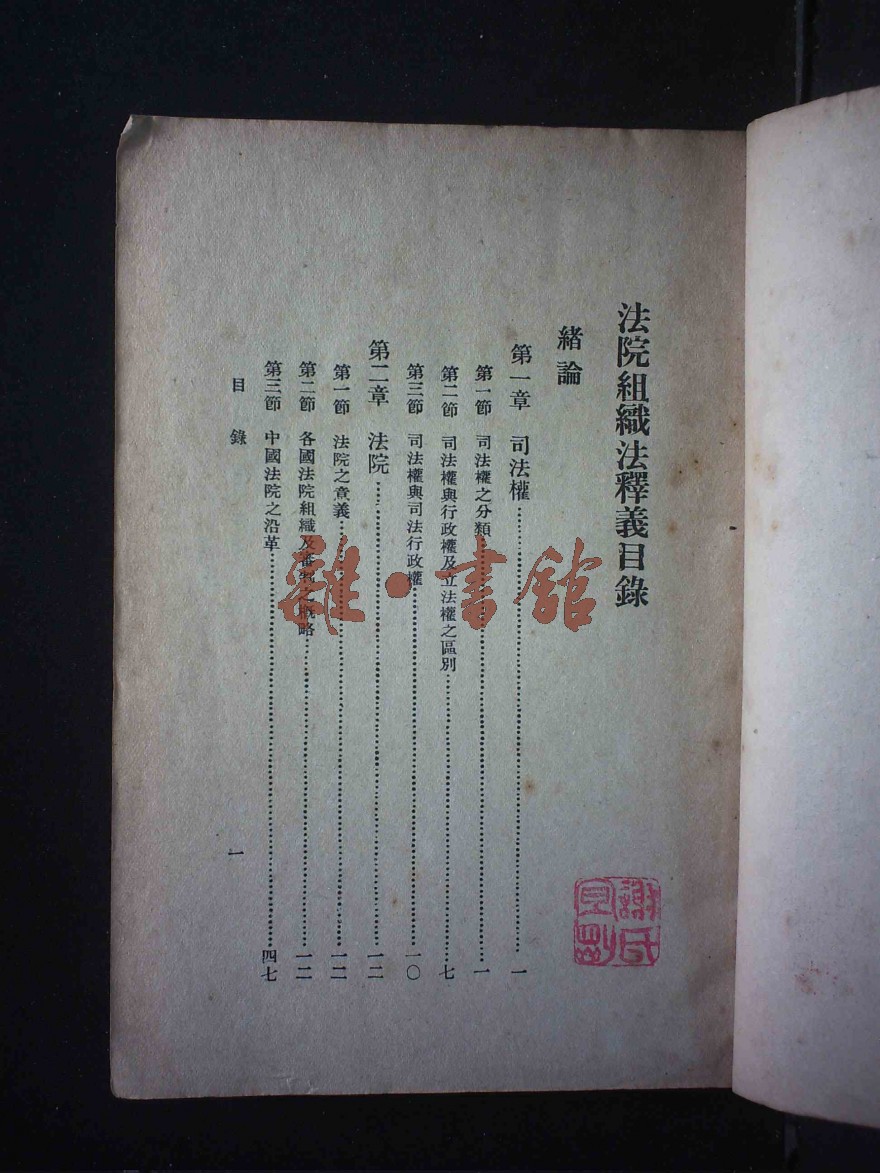 法院組織法釋義目錄
緒論
第一章 司法權⋯⋯一
第一節 司法權之分類⋯⋯一
第二節 司法權與行政權及立法權之區別⋯⋯七
第三節 司法權與司法行政權⋯⋯一〇
第二章 法院⋯⋯一二
第一節 法院之意義⋯⋯一二
第二節 各國法院組織及審判之概略⋯⋯一二
第三節 中國法院之沿革⋯⋯四七
目錄
一
雜·書館
謝氏